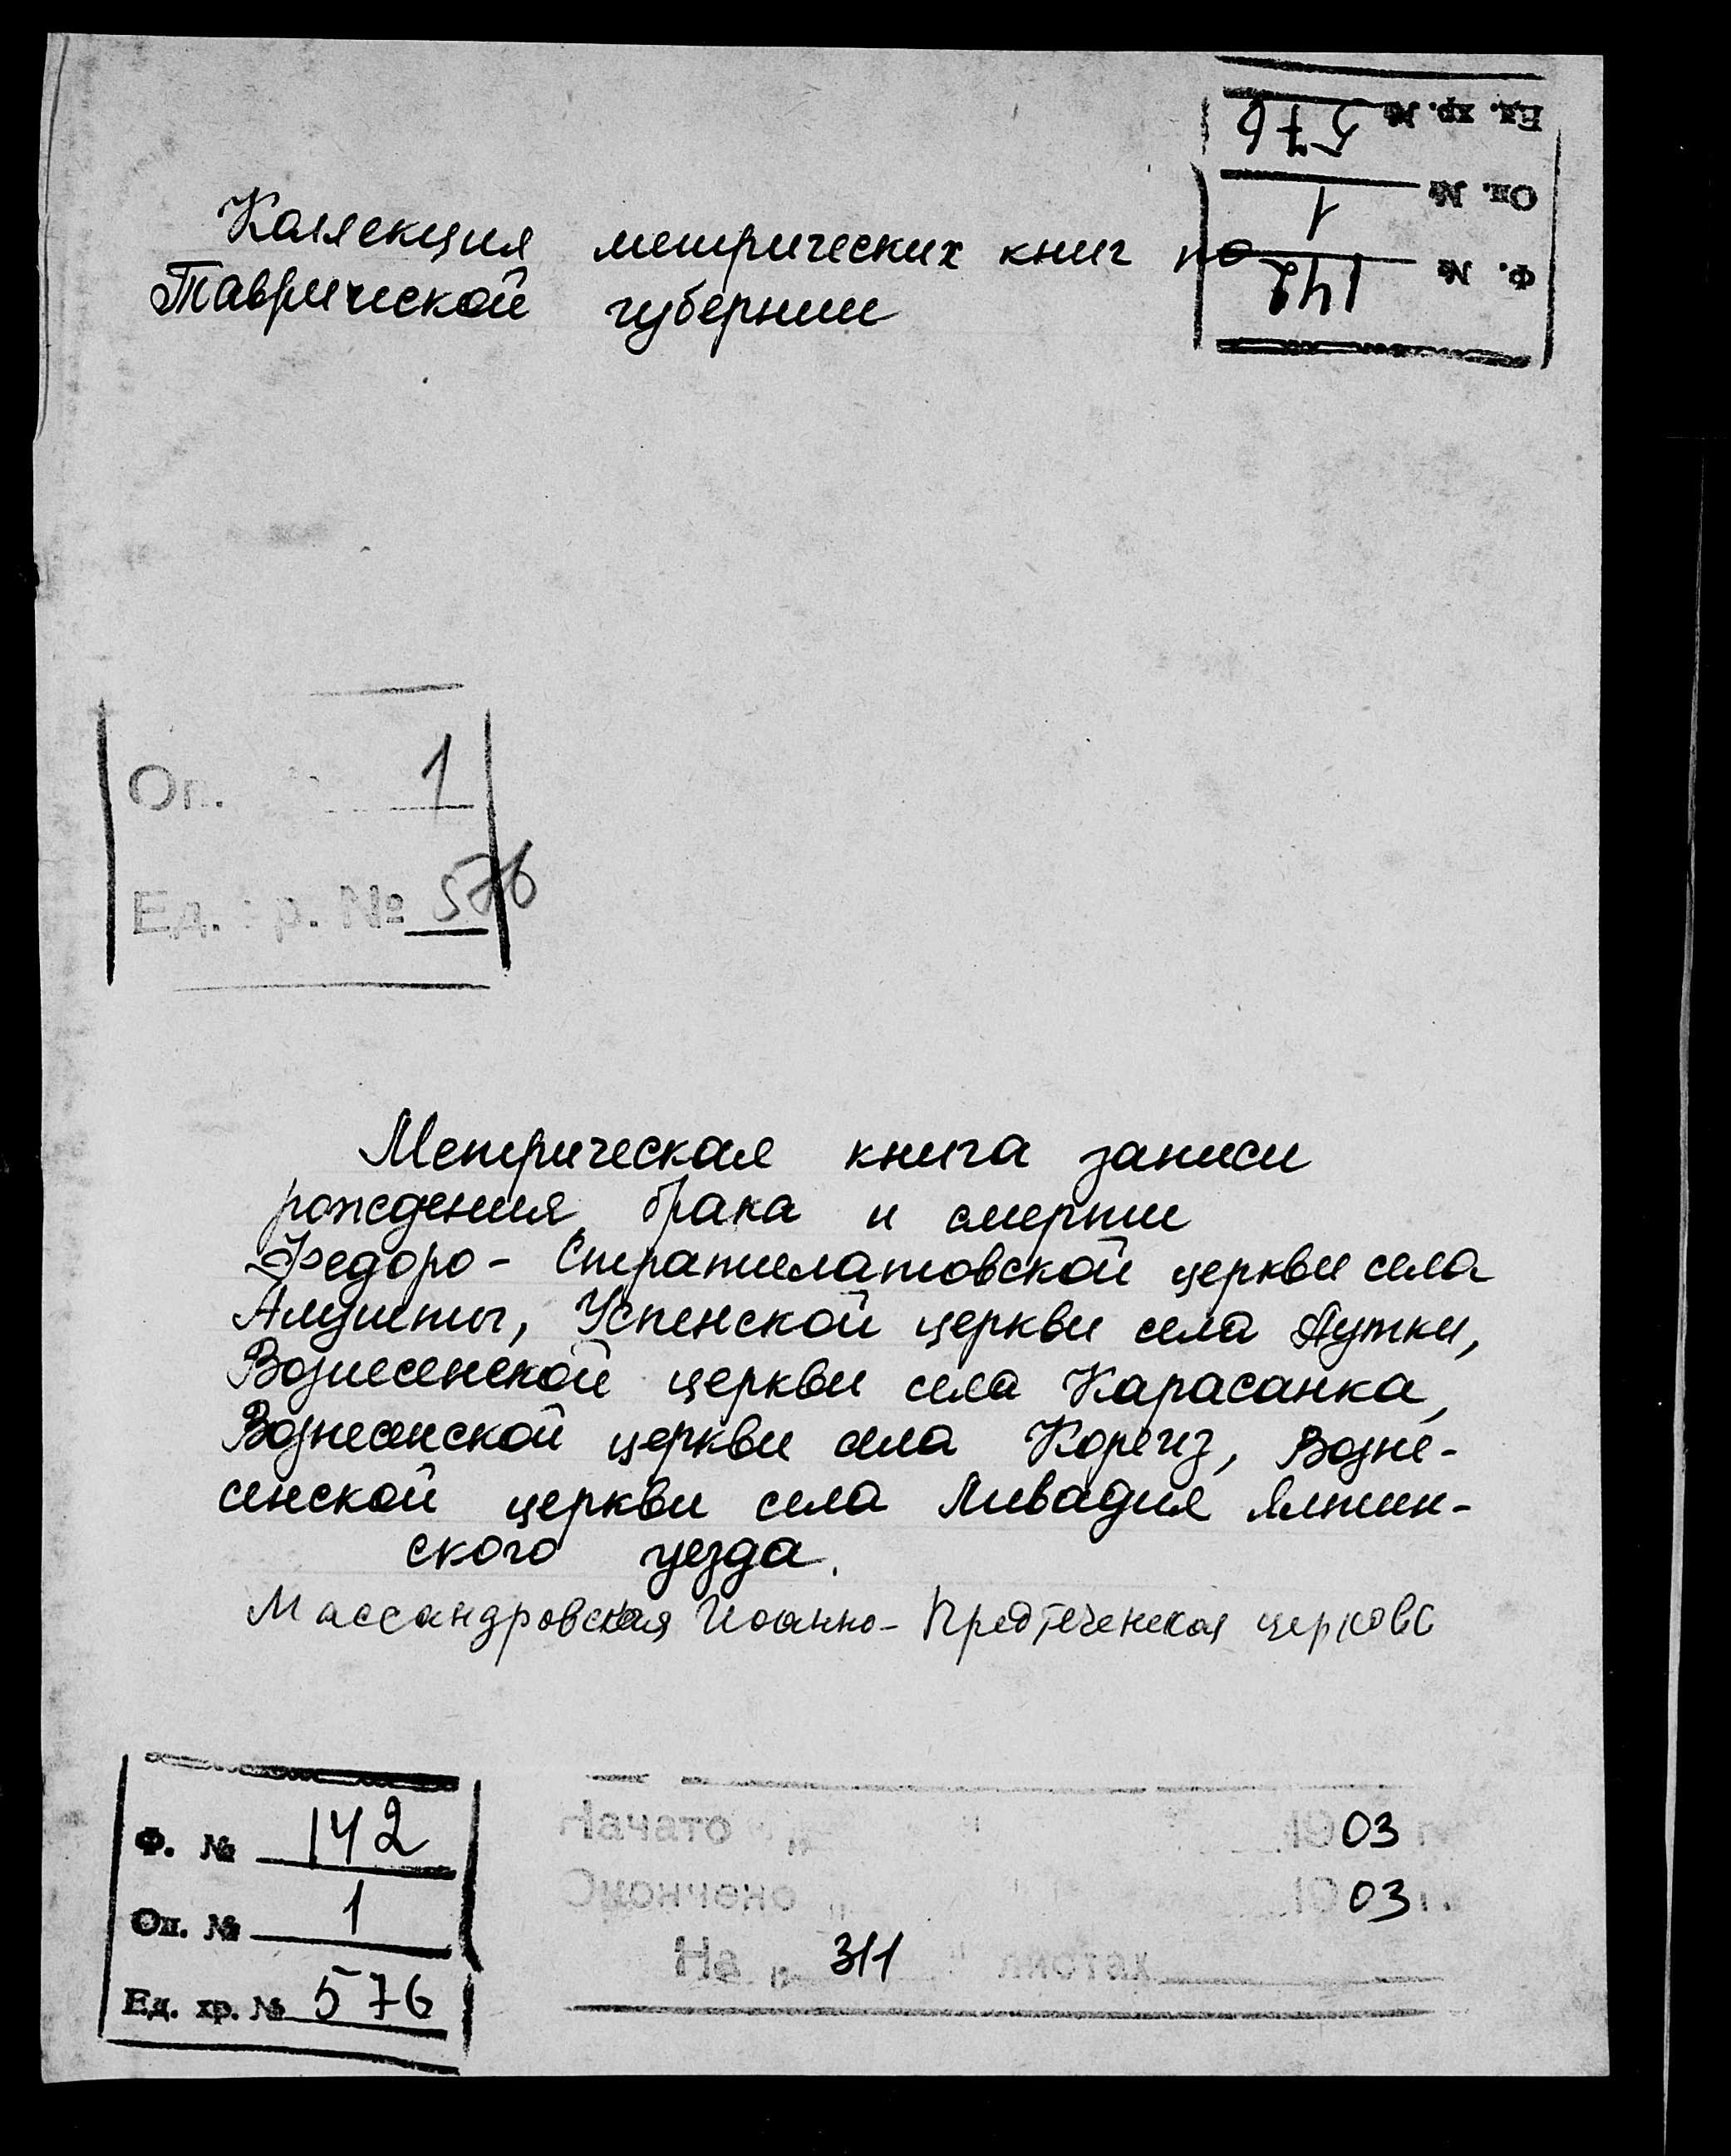 Ед. хр. № 576
Оп. № 1
Ф. № 142
Коллекция метрических книг по
Таврической губернии
Оп. 1
Ед. хр. № 576
Метрическая книга записи
рождения, брака и смерти
Федоро- Стратилатовской церкви села
Алушты, Успенской церкви села Аутки,
Вознесенской церкви села Карасанка,
Вознесенской церкви села Кореиз, Возне-
сенской церкви села Ливадия Ялтин-
ского уезда.
Массандровская Иоанно- Предтеченская церковь
Ф. № 142
Оп. № 1
Ед. хр. № 576
Начато " " 1903 г.
Окончено " " 1903 г.
На " 311 " листах